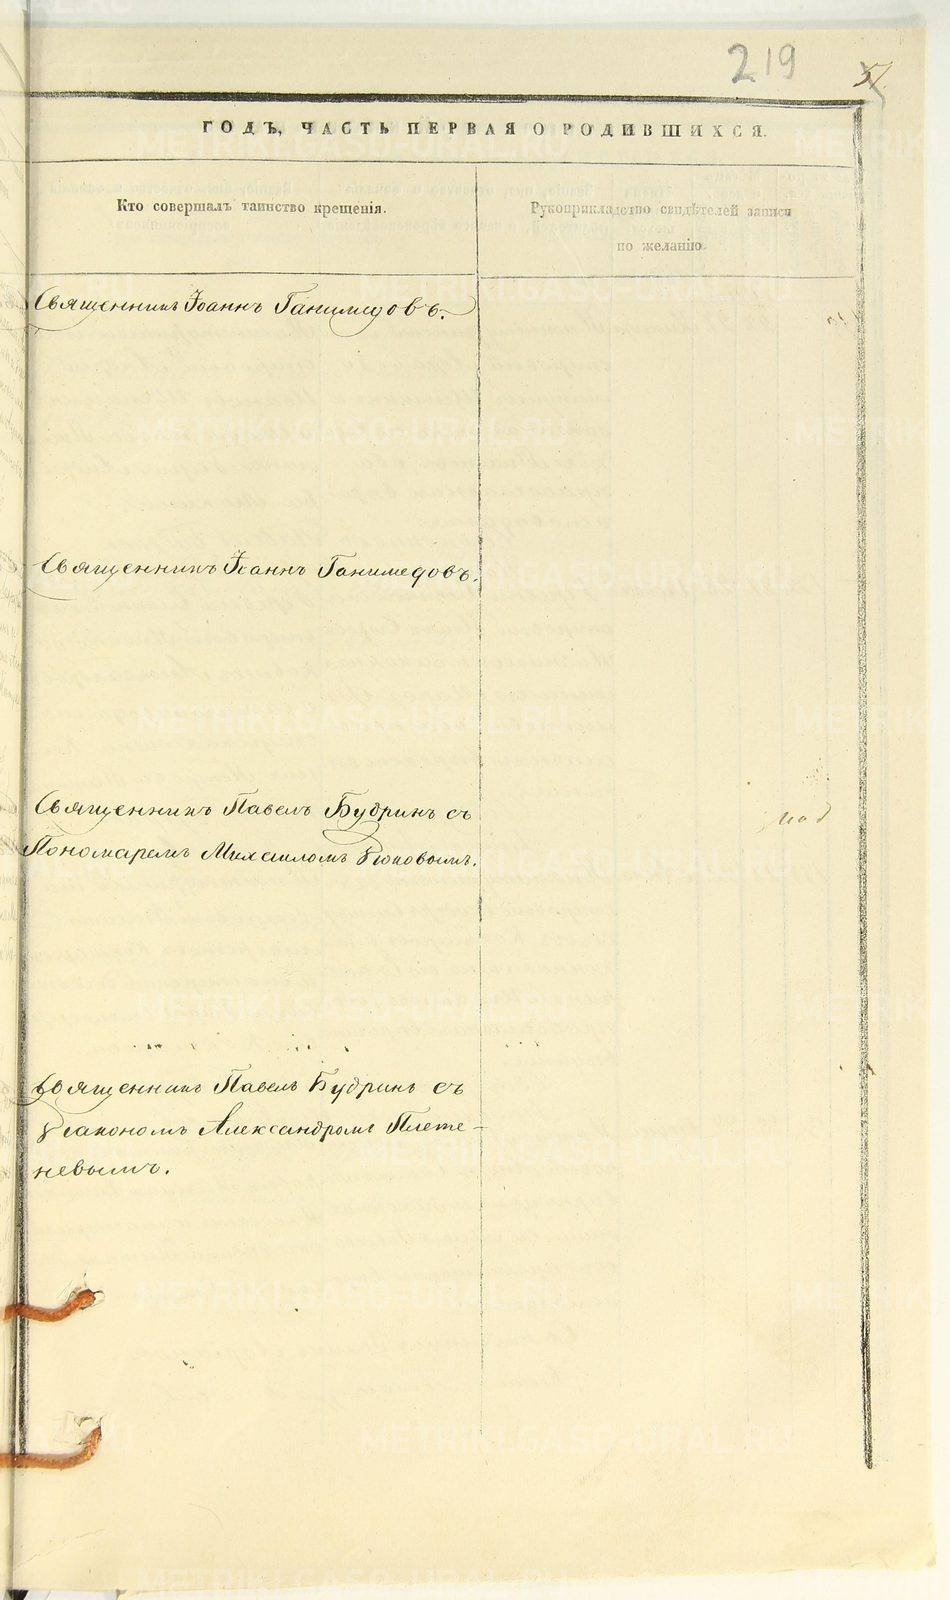 219
57
ГОДЪ, ЧАСТЬ ПЕРВАЯ О РОДИВШИХСЯ.
Кто совершалъ таинство крещенія.
Рукоприкладство свидѣтелей записи
по желанію.
Священникъ Іоаннъ Ганимедовъ.
Священникъ Іоаннъ Ганимедовъ.
Священникъ Павелъ Будринъ съ
Пономаремъ Михаиломъ
Священникъ Павелъ Будринъ съ
Діакономъ Александромъ Плете-
невымъ.
METRIKI.GASO-URAL.RU